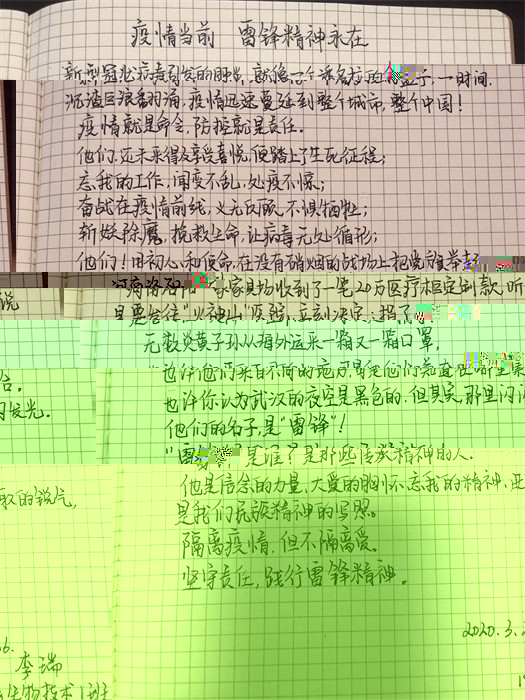 疫情当前 雷锋精神永在
新型冠状病毒引发的肺炎,就像一个 一时间,
沉渣巨浪翻涌,疫情迅速蔓延到整个城市,整个中国!
疫情就是命令,防控就是责任。
他们,还未来得及享受喜悦,便踏上了生死征程;
忘我的工作,闻变不乱,处疫不惊;
奋战在疫情前线,义无反顾,不惧牺牲;
斩妖除魔,挽救生命,让病毒无处循形;
他们!用初心和使命,在没有硝烟的战场上把党旗举起
家家具场收到了一笔20万医疗柜定制款,听
说
是要给住"火神山"医院,立刻决定:捐了
无数炎黄子孙从海外运来一箱又一箱口罩,
也许他们来自不同的地方
台。
也许你认为武汉的夜空是黑色的,但其实,那里闪
发光。
他们的名子,是"雷锋"!
是谁?是那些传承精神的人。
他是信念的力量,大爱的胸怀,忘我的精神,
取的锐气,
是我们民族精神的写照。
隔离疫情,但不隔离爱。
坚守责任,践行雷锋精神。
2020.3.
6.
李瑞
生物技术1班